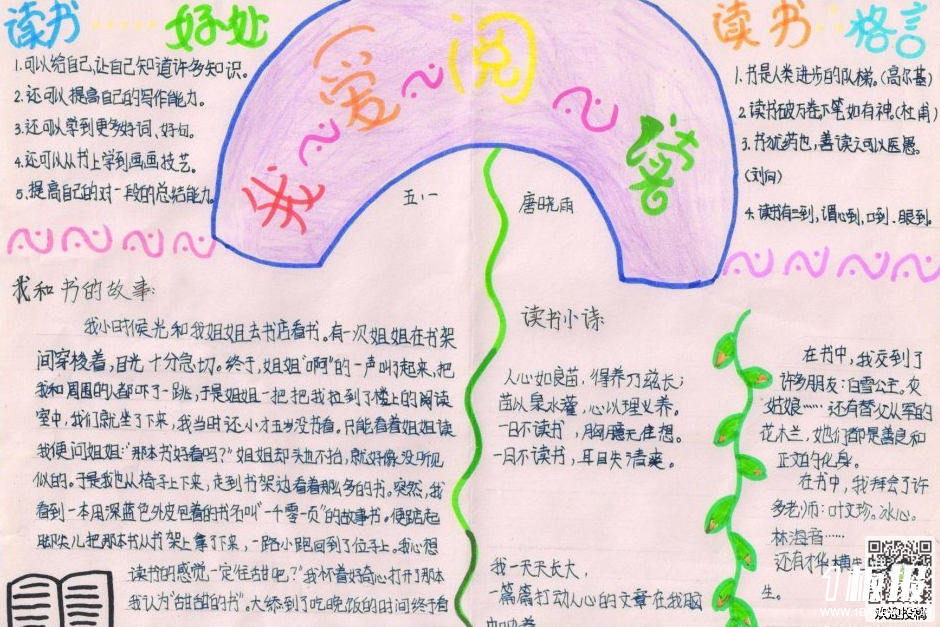 读书
好处
1.可以给自己,让自己知道许多知识。
2.还可以提高自己的写作能力。
3.还可以学到更多好词、好句。
4.还可以从书上学到画画技艺。
5、提高自己的对一段的总结能力。
我爱阅读
五.一
唐晓雨
读书
格言
1.书是人类进步的阶梯。(高尔基)
2.读书破万卷下笔如有神。(杜甫)
3.书犹药也,善读之可以医愚。
(刘向)
4.读书有三到,谓心到、口到、眼到。
我和书的故事:
我小时候光和我姐姐去书店看书。有一次姐姐在书架
间穿梭着,目光十分急切。终于,姐姐"啊"的一声叫了起来,把
我和周围的人都吓了一跳,于是姐姐一把把我拉到了楼上的阅读
室中,我们就坐了下来,我当时还小才五岁没书看。只能看着姐姐读
我便问姐姐:"那本书好看吗?"姐姐却头也不抬,就好像没听见
似的。于是我也从椅子上下来,走到书架边看着那么多的书。突然,我
看到一本用深蓝色外皮包着的书名叫"一千零一页"的故事书。便踮起
脚尖儿把那本书从书架上拿了下来,一路小跑回到了位子上。我心想
读书的感觉一定很甜吧?"我怀着好奇心打开了那本
我认为"甜甜的书"。大
到了吃晚饭的时间终于看
读书小诗:
人心如良苗,得养乃滋长;
苗以泉水灌,心以理义养。
一日不读书,胸臆无佳想。
一月不读书,耳目失清爽。
我一天天长大,
一篇篇打动人心的文章在我脑
在书中,我交到了
许多朋友:白雪公主。灰
姑娘……还有替父从军的
花木兰,她们都是善良和
正义的化身。
在书中,我拜会了许
多老师:叶文玲。冰心。
林海音……
还有才华横
生。
欢迎投稿